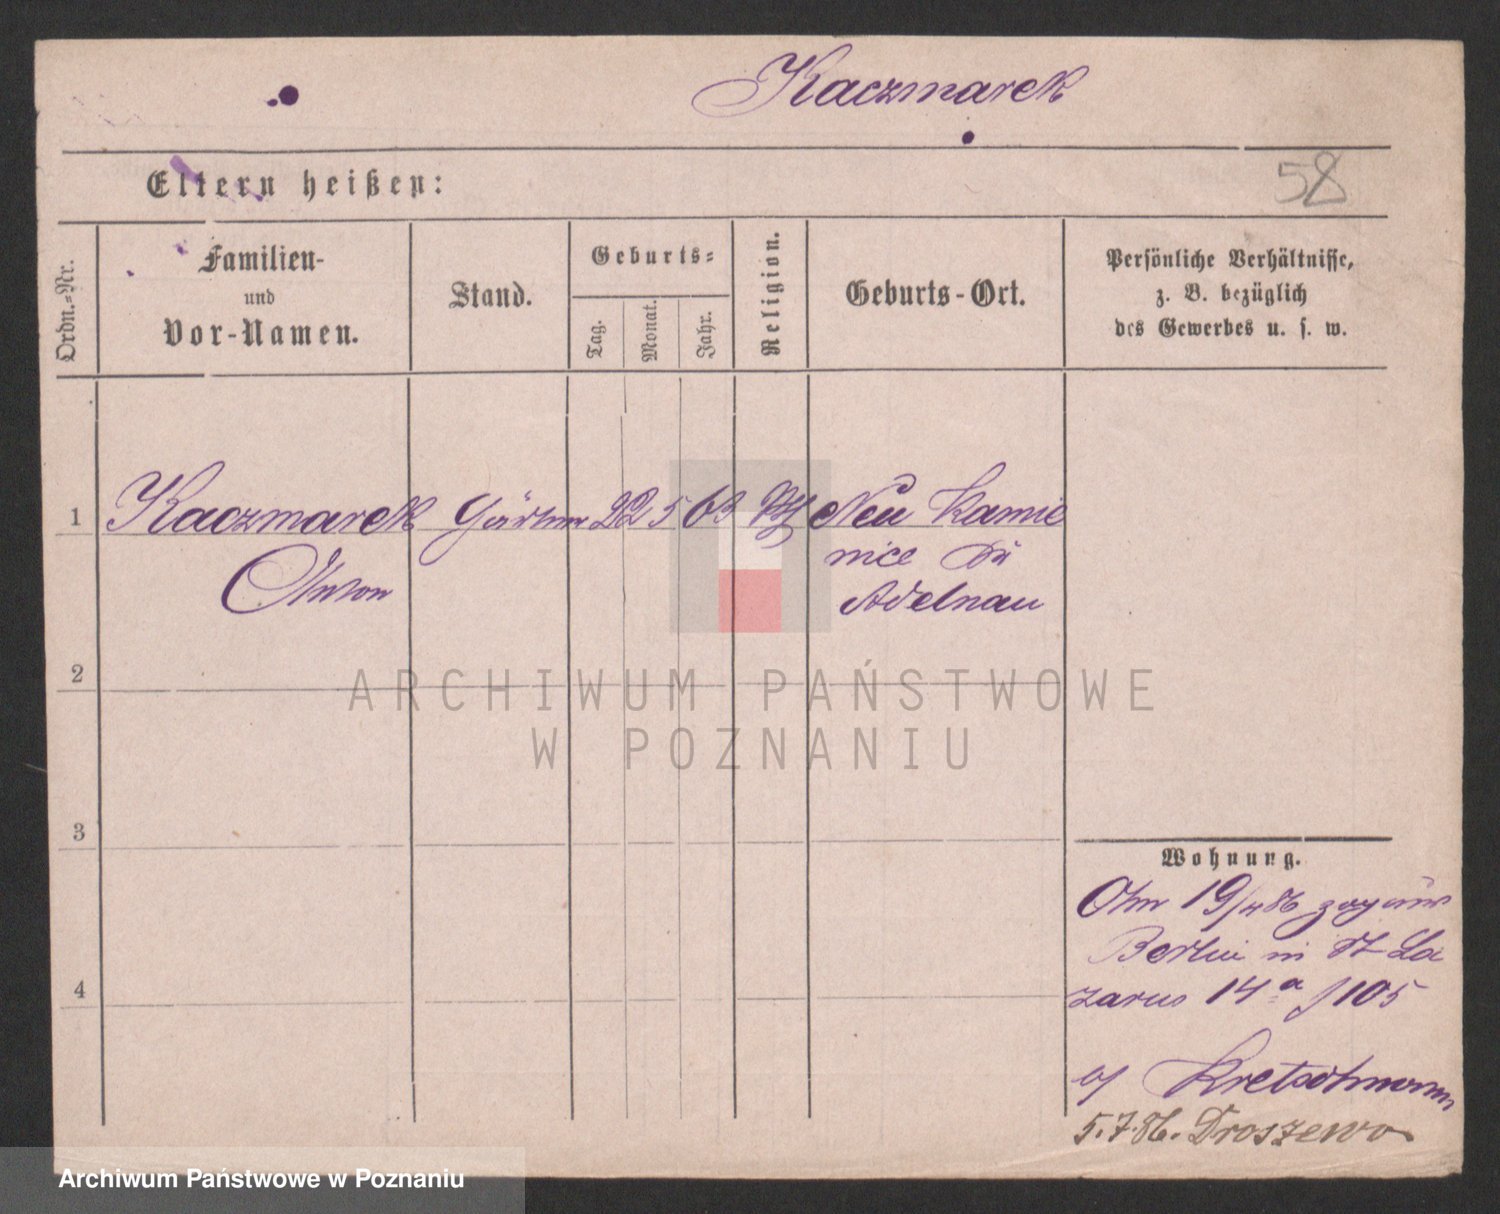 Kaczmarek
58
Eltern heißen:
Ordn.-Nr.
Familien-
und
Vor-Namen.
Stand.
Geburts-
Tag.
Monat.
Jahr.
Religion.
Geburts-Ort.
Persönliche Verhältnisse,
z. B. bezüglich
des Gewerbes u. s. w.
1 Kaczmarek Gärtner 22 5 63 Neu Kamie
Anton nice
Adelnau
2
ARCHIWUM PAŃSTWOWE
W POZNANIU
3
Wohnung.
19/4 86
Berlin in St La
4
zarus 14a 105
Kretschmann
5.7.86. Droszewo
Archiwum Państwowe w Poznaniu